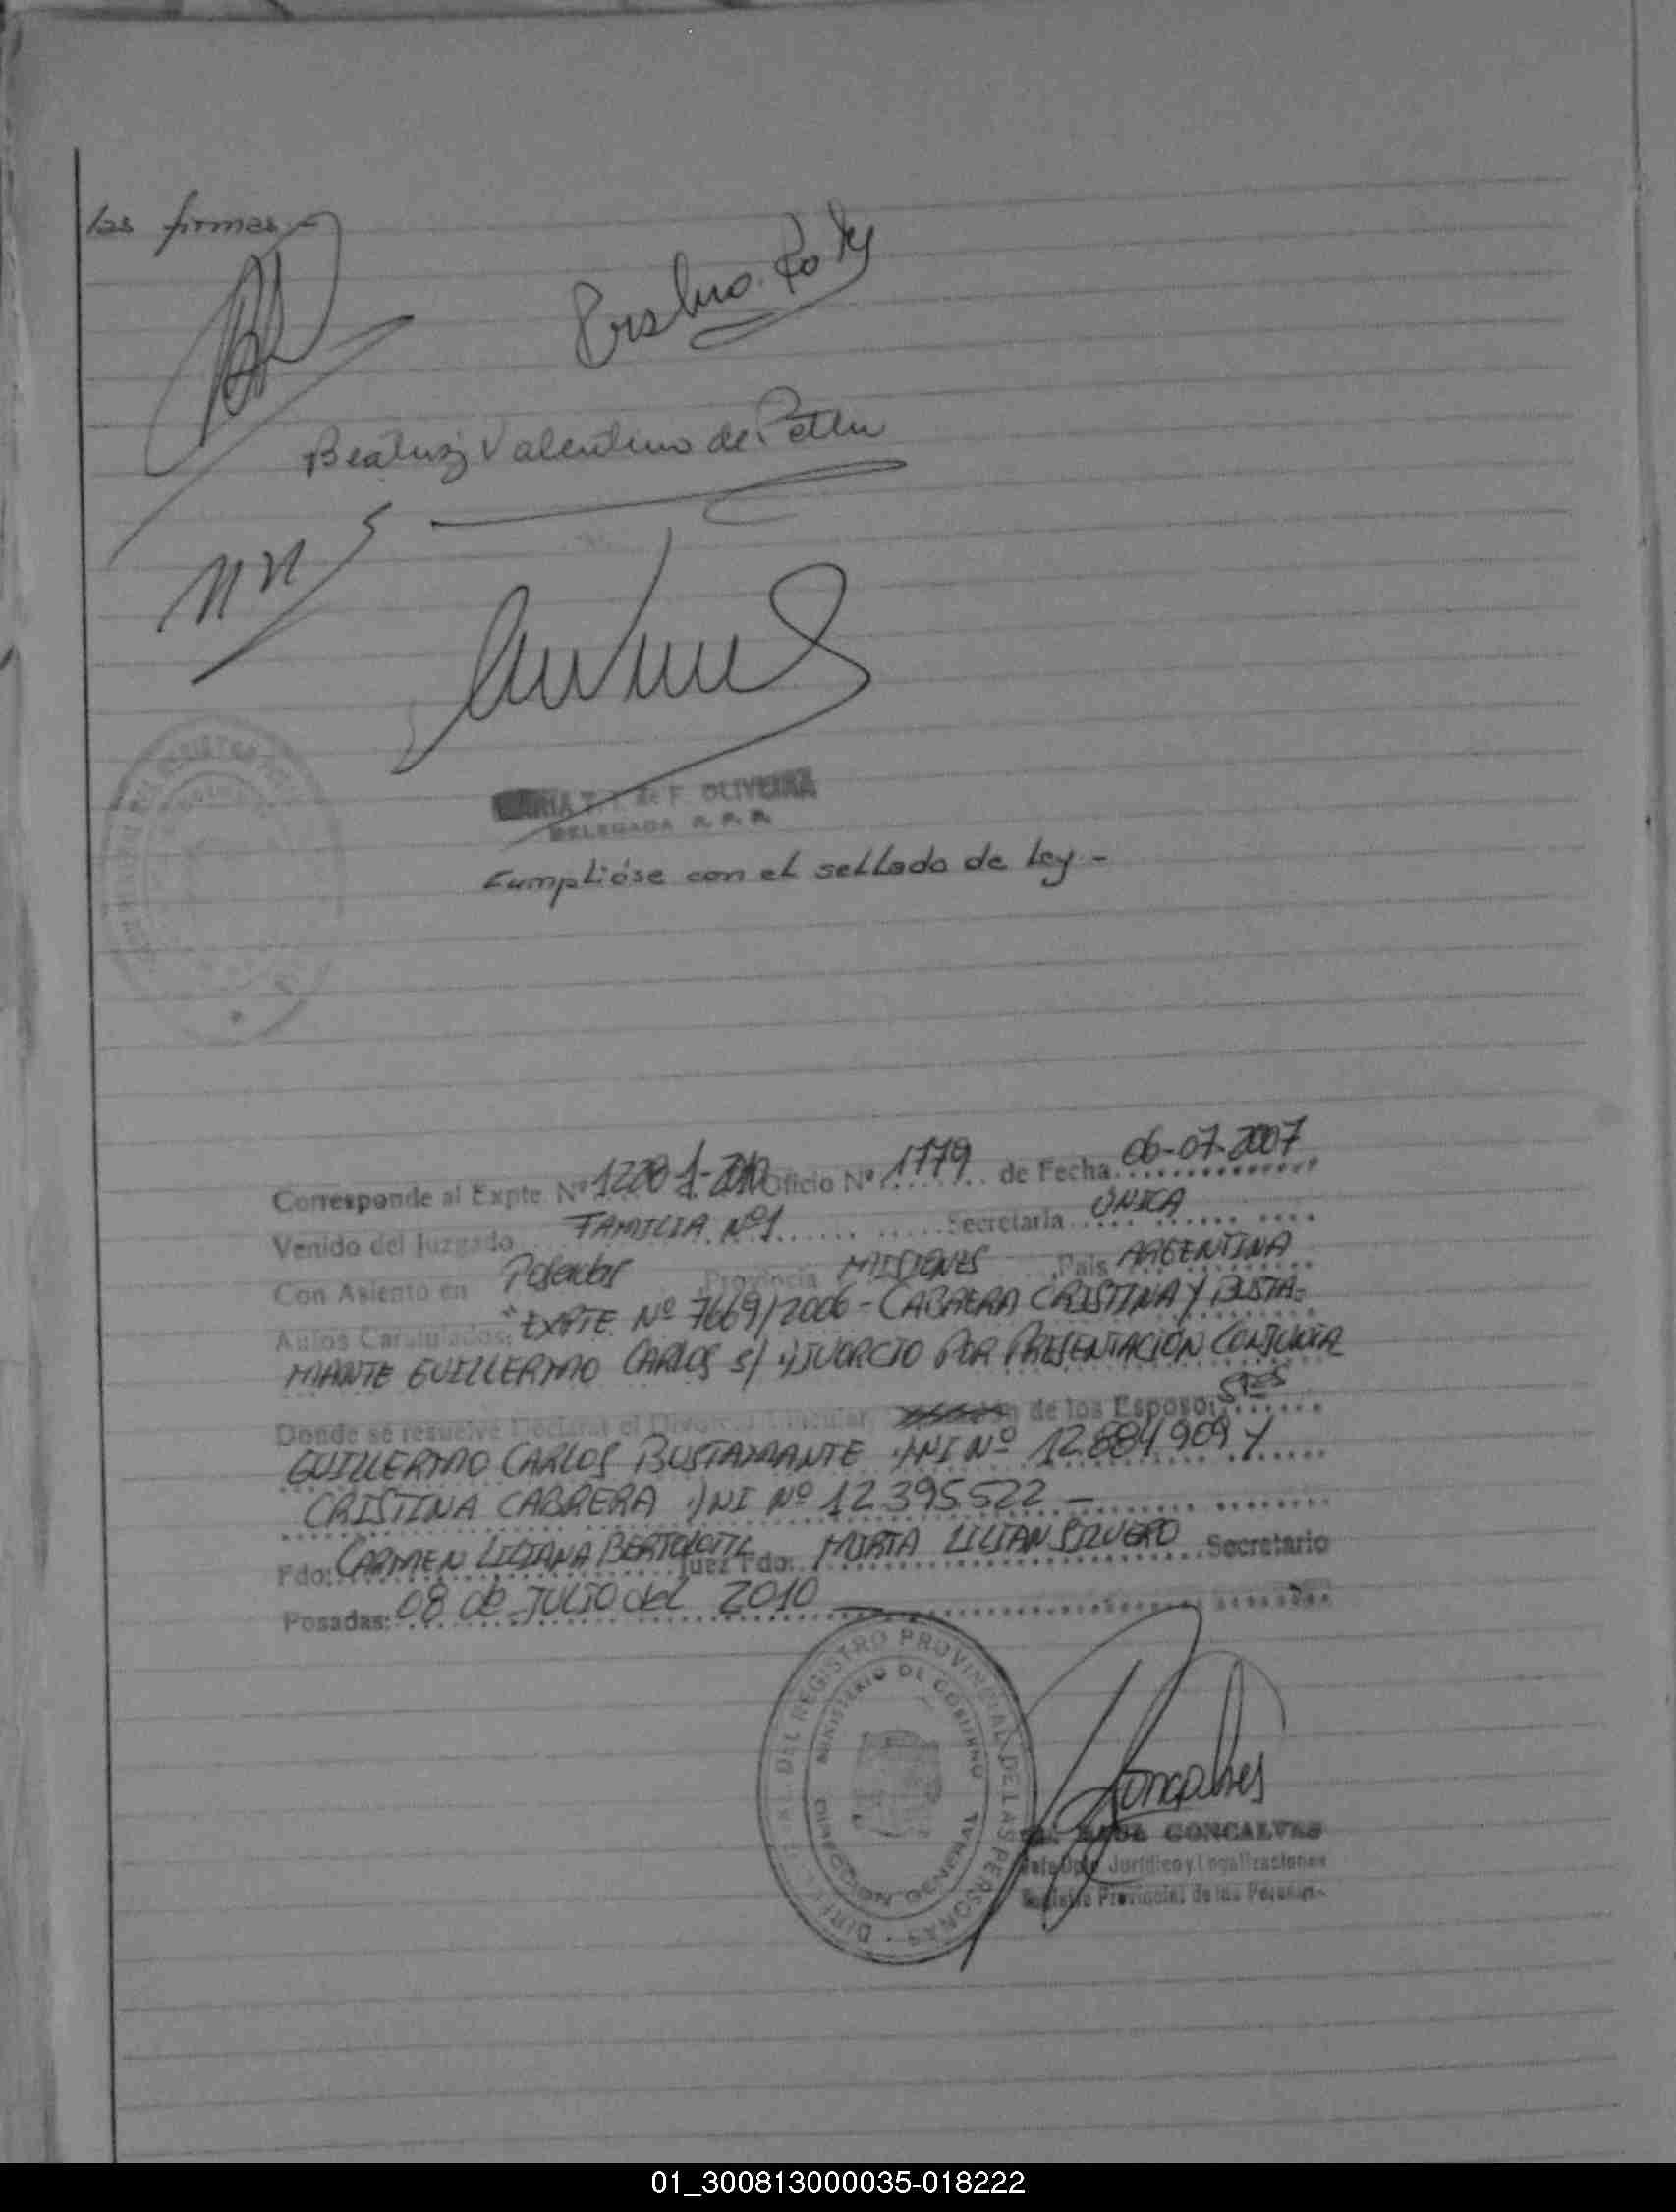 las firmas -
Beatriz Valentino de
OLIVEIRA
DELEGADA R. P. P.
Cumplióse con el sellado de Ley -
Corresponde al Expte. Nº Oficio Nº 1779 de Fecha 06-07-2007
Venido del Juzgado FAMILIA Nº 1 Secretaría ÚNICA
Con Asiento en Posadas Provincia MISIONES País ARGENTINA
Autos Caratulados: "EXPTE Nº 7669/2006 - CABRERA CRISTINA Y BUSTA-
MANTE GUILLERMO CARLOS S/ DIVORCIO POR PRESENTACIÓN CONJUNTA
Donde se resuelve Declarar el Divorcio Vincular de los Esposos Sres
GUILLERMO CARLOS BUSTAMANTE DNI Nº 12.884.909 Y
CRISTINA CABRERA DNI Nº 12.395.522 -
Fdo: CARMEN LILIANA Juez Fdo: MIRTA LILIAN SILVERO Secretario
Posadas: 08 de JULIO del 2010
DEL REGISTRO PROVINCIAL DE LAS PERSONAS
MINISTERIO DE GOBIERNO
DIRECCION GENERAL
Goncalves
RAUL GONCALVES
Jefe Dpto. Jurídico y Legalizaciones
Registro Provincial de las Personas
01_300813000035-018222